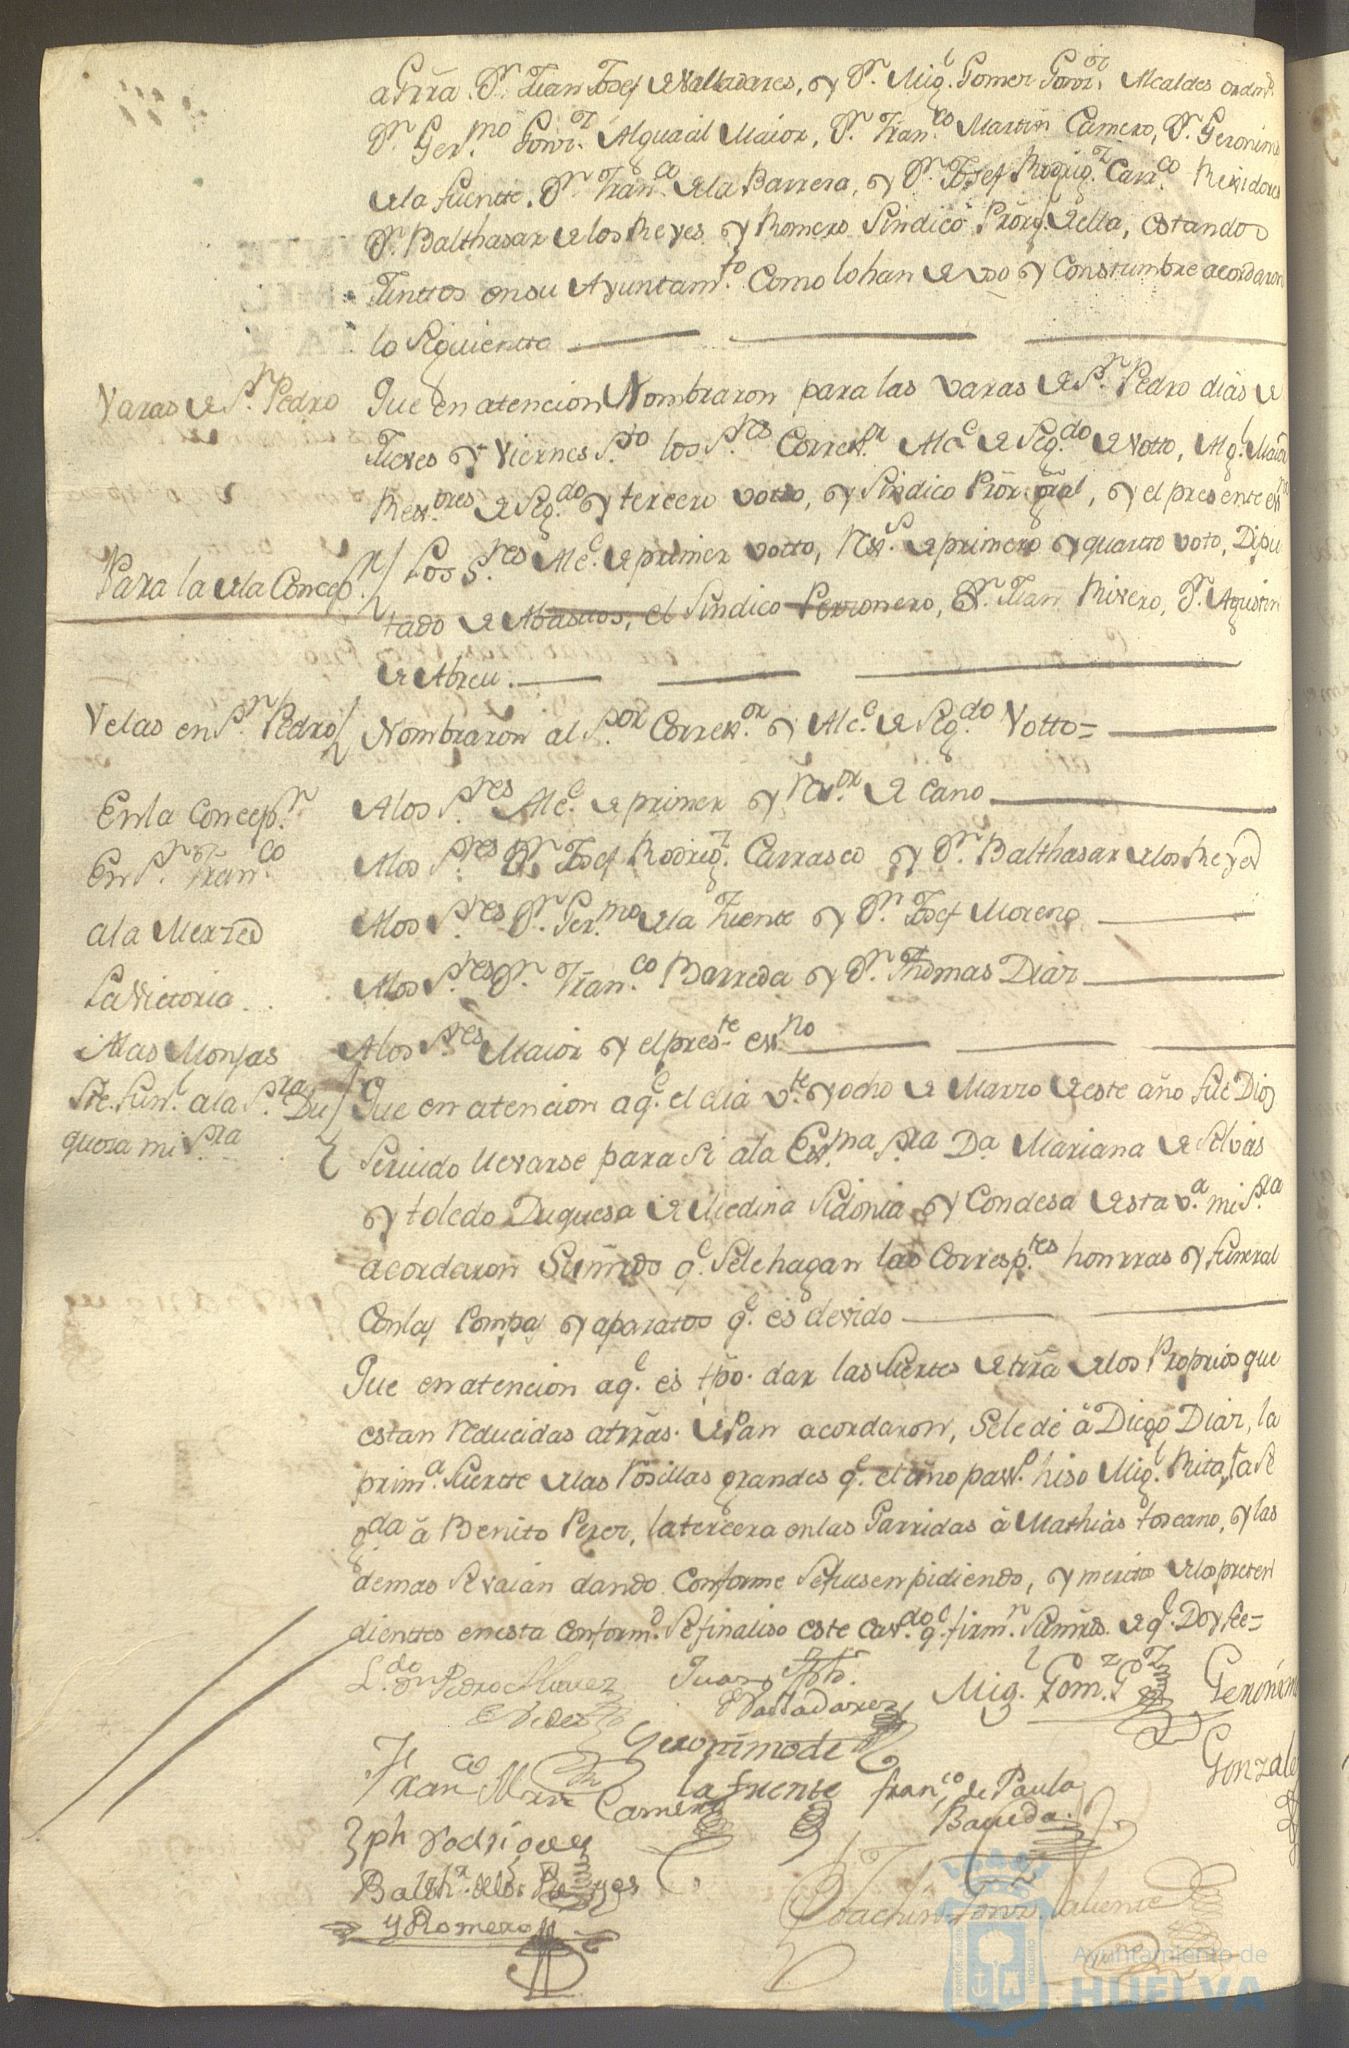 a trrã. Dn. Juan Josef de Valladares, y Dn. Migl. Gomez Gonz. Alcaldes ordins.
Dn. Germo. Gonz. Alguazil Maior, Dn. Franco. Martin Camero, Dn. Geronimo
de la fuente. Dn. Franco. de la Barrera, y Dn. Josef Rodrigz. Carrco. Rexidores
Dn. Balthasar de los Reyes y Romero Sindico Prorgl. de ella, estando
Junttos en su Ayuntamto. como lo han de uso y Constumbre acordaron
lo Siguientte
Varas de Sn. Pedro
Que en atencion Nombraron para las varas de Sn. Pedro dias de
Jueves y Viernes Sto. los Sres. Correxor. Alce. de Segdo. de votto, Algl. Maior
Rexores. de Segdo. y tercero votto, y Sindico Pror. gral, y el presente exno.
Para la de la Concepn.
Los Sres. Alce. de primer votto, Rexs. de primero y quarto voto, Dipu
tado de Abastos, el Sindico Perzonero, Dn. Juan Rivero, Dn. Agustin
de Abreu.
Velas en Sn. Pedro
Nombraron al Sor. Correxor. y Alce. de Segdo. Votto=
En la Concepn.
A los Sres. Alce. de primer y Rexor. de Cano
En Sn. Franco.
A los Sres. Dn. Josef Rodrigz. Carrasco y Dn. Balthasar de los Reyes
a la Merzed
A los Sres. Dn. Germo. de la Fuente y Dn. Josef Moreno
La Victoria
A los Sres. Dn. Franco. Barreda y Dn. Thomas Diaz
A las Monjas
A los Sres. Maior y el preste. exno.
Sre. Funl. a la Sra. Du
quesa mi Sra.
Que en atencion a qe. el dia vte. y ocho de Marzo de este año fue Dios
Servido llevarse para Si a la Exma. Sra. Da. Mariana de Silvas
y toledo Duquesa de Medina Sidonia y Condesa de esta va. mi Sra
acordaron Sumrds qe. Se le hagan las Corresptes. honrras y funeral
Con las Pompas y aparatos qe. es devido
Que en atencion a qe. es tpõ. dar las Suertes de trrã de los Proprios que
estan reducidas a trrãs. de Pan acordaron, Se le dé á Diego Diaz, la
prima. Suerte de las Posillas grandes qe. el año passo. hiso Migl. Rita, la Se
gda á Benito Perez, la tercera en las Parridas á Mathias toscano, y las
demas Se vaian dando Conforme Se fuesen pidiendo, y merito de los preten
dienttes en esta Conformd. Se finaliso este Cavdo. qe. firmn. Sumrds. de qe. Doy fee=
Ldo. Dn Pedro Alvarez
Juan Jph.
Valladarez
Migl. Gomz. Gz
Geronimo
Gonzalez
Geronimo de
la fuente
Franco Mrn Camero
franco. de Paula
Barreda.
Jph rodriguez
Baltha. de los Reyes
y Romero
Joachin Gonz. Valiente
Ayuntamiento de
HUELVA